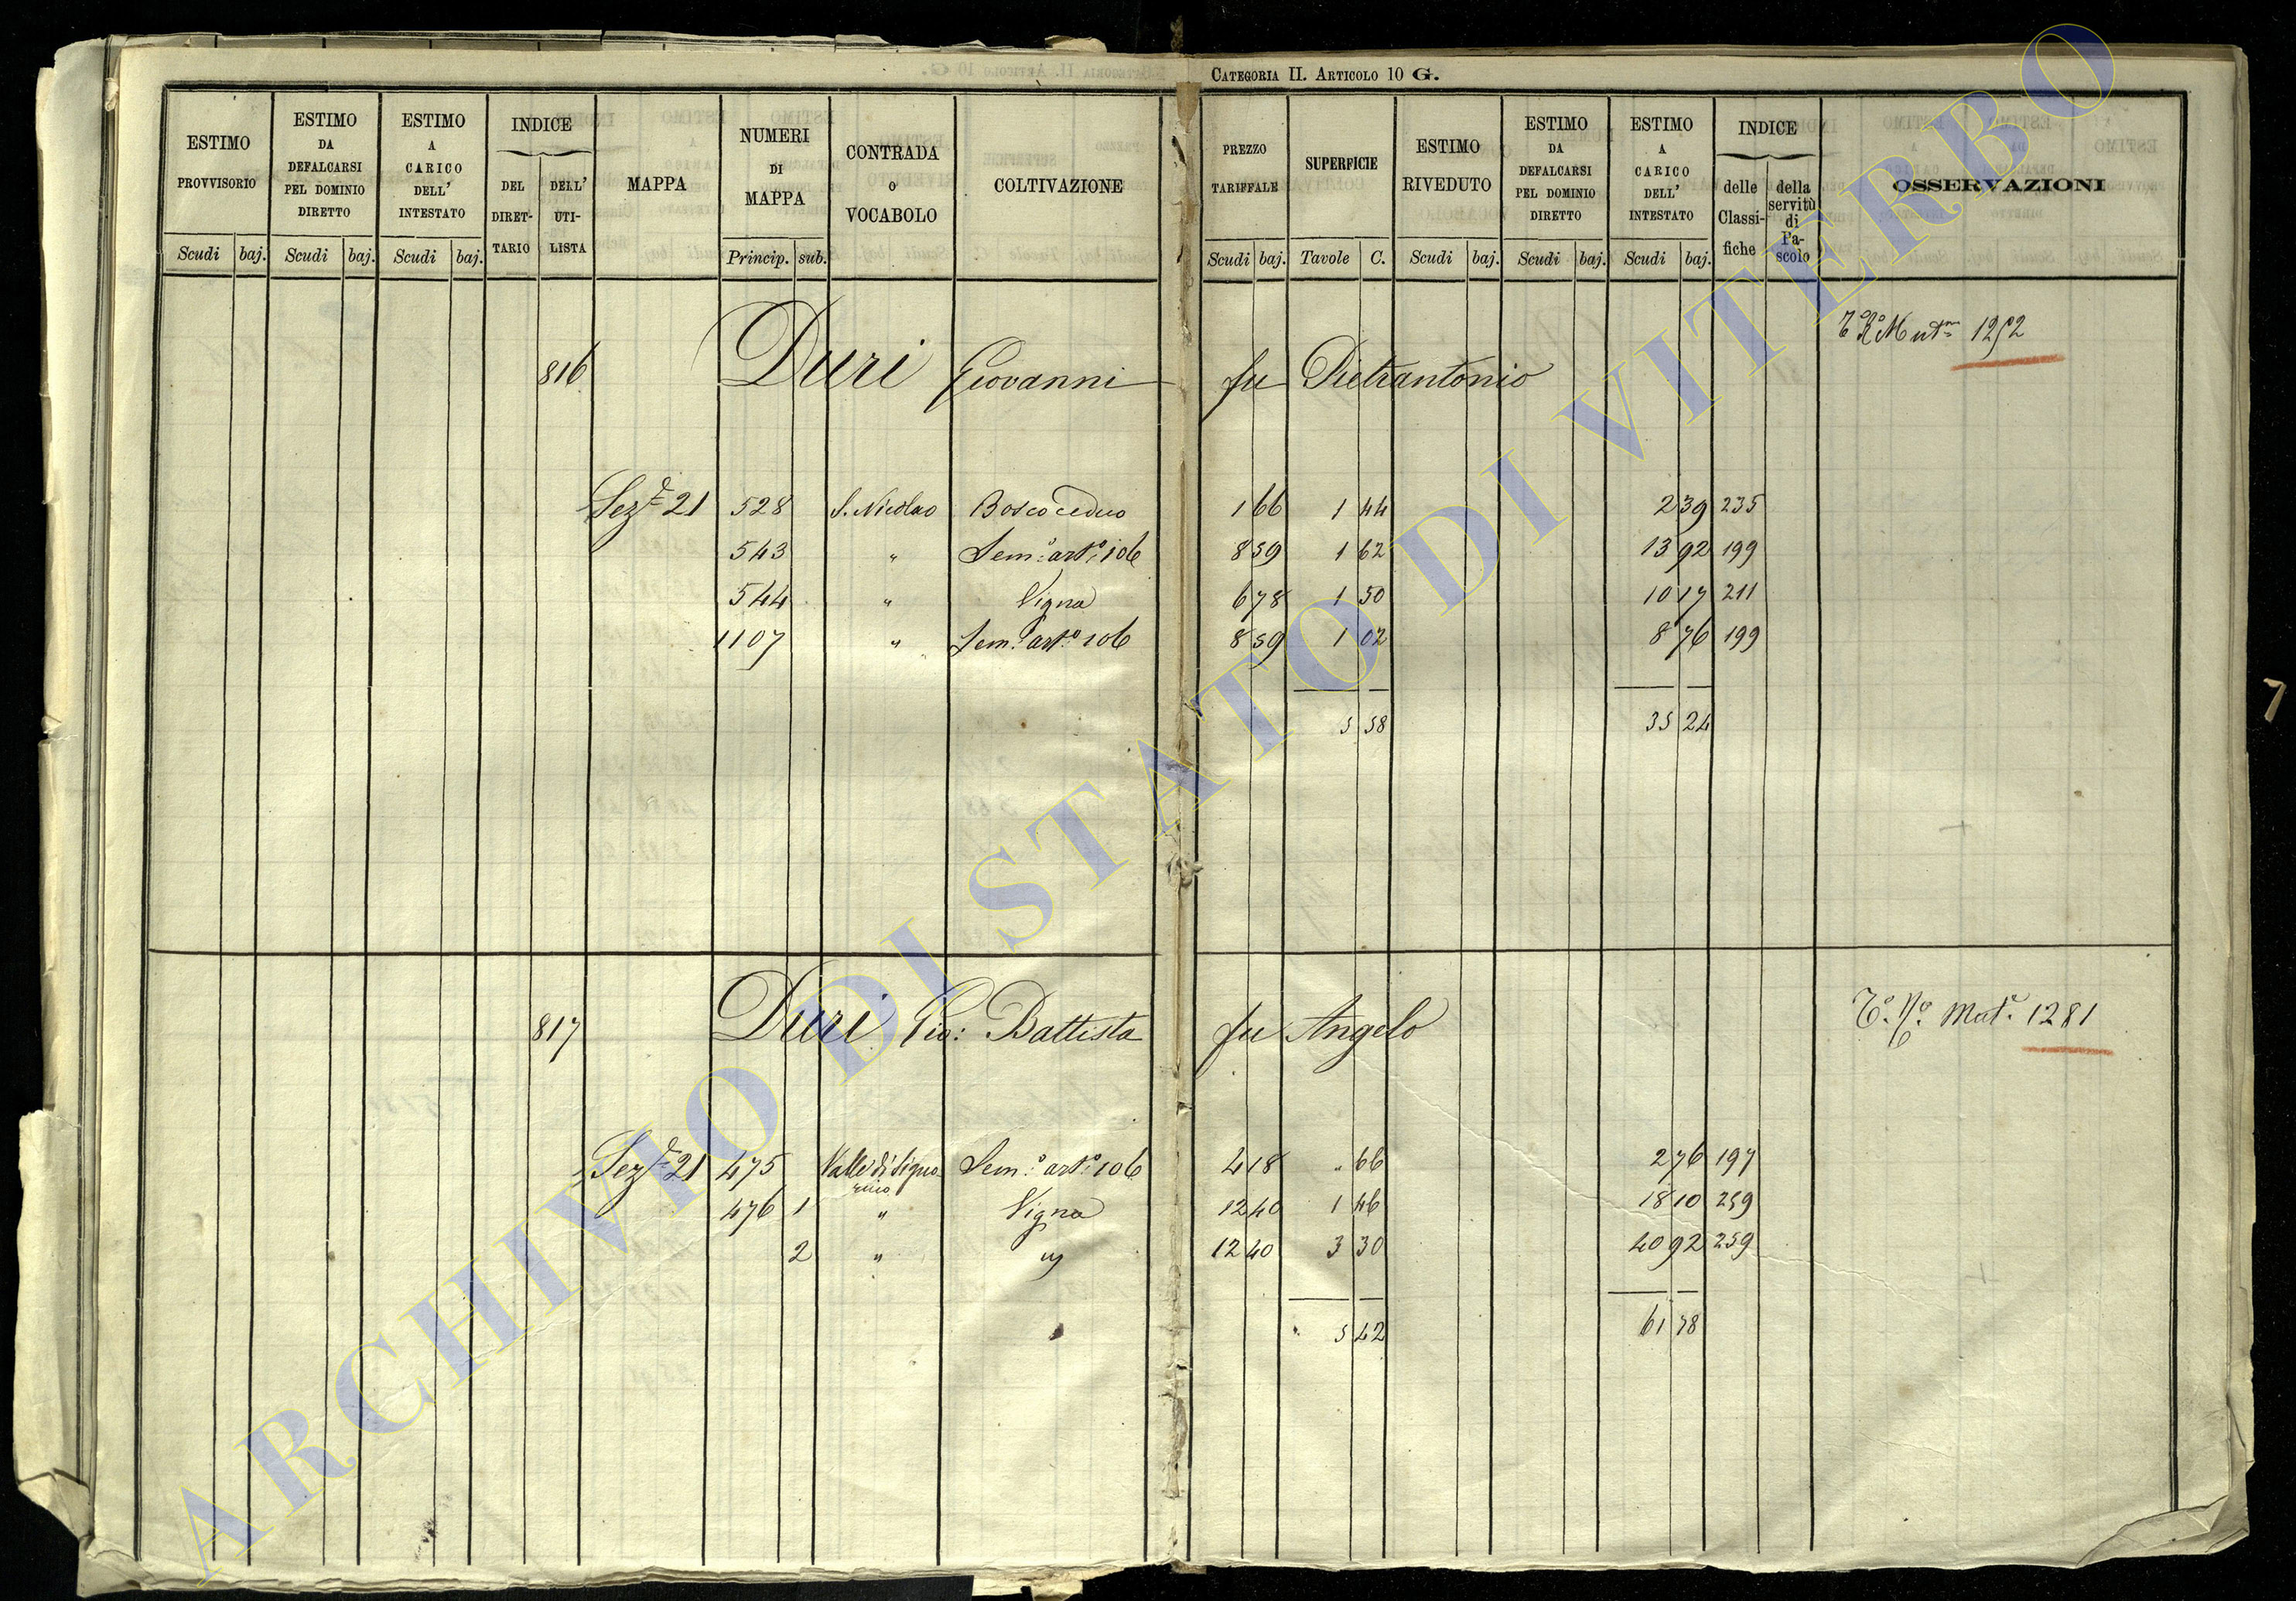 CATEGORIA II. ARTICOLO 10 G.
ESTIMO PROVVISORIO Scudi baj. | ESTIMO DA DEFALCARSI PEL DOMINIO DIRETTO Scudi baj. | ESTIMO A CARICO DELL' INTESTATO Scudi baj. | INDICE DEL DIRET-TARIO DELL' UTI-LISTA | MAPPA | NUMERI DI MAPPA Princip. sub. | CONTRADA O VOCABOLO | COLTIVAZIONE | PREZZO TARIFFALE Scudi baj. | SUPERFICIE Tavole C. | ESTIMO RIVEDUTO Scudi baj. | ESTIMO DA DEFALCARSI PEL DOMINIO DIRETTO Scudi baj. | ESTIMO A CARICO DELL' INTESTATO Scudi baj. | INDICE delle Classi-fiche della servitù di Pa-scolo | OSSERVAZIONI
816 Duri Giovanni fu Pietrantonio 1252
Sez.e 21 528 S. Nicolao Bosco ceduo 1 66 1 44 2 39 235
543 " Sem.o art.o 106 8 59 1 62 13 92 199
544 " Vigna 6 78 1 50 10 17 211
1107 " Sem.o art.o 106 8 59 1 02 8 76 199
5 58 35 24
817 Duri Gio: Battista fu Angelo Mut.e 1281
Sez.e 21 475 Valle di Signo Sem.o art.o 106 4 18 " 66 2 76 197
rino
476 1 " Vigna 12 40 1 46 18 10 259
2 " " 12 40 3 30 40 92 259
5 42 61 78
7
ARCHIVIO DI STATO DI VITERBO